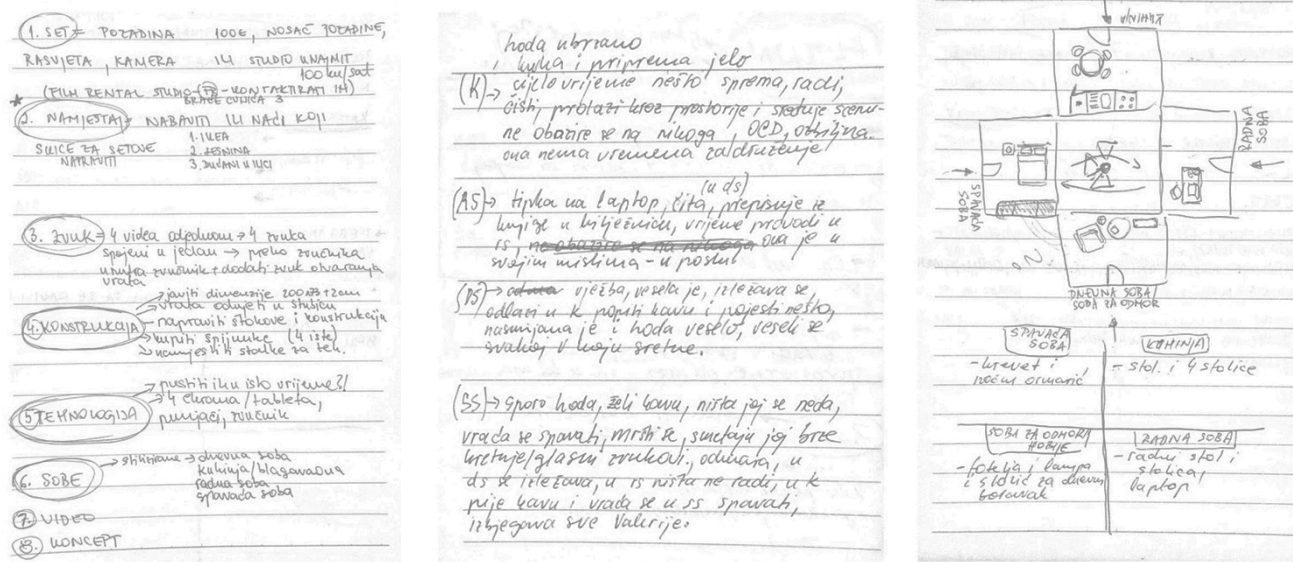 1. SET = POZADINA 100€, NOSAČ POZADINE,
RASVJETA, KAMERA ILI STUDIO UNAJMIT
100 kn/sat
(FILM RENTAL STUDIO - KONTAKTIRATI IH)
BRAĆE CVIJIĆA 3
2. NAMJEŠTAJ = NABAVITI ILI NAĆI KOJI
SKICE ZA SETOVE
NAPRAVITI
1. IKEA
2. LESNINA
3. DUĆANI U ILICI
3. ZVUK = 4 videa odjednom → 4 zvuka
spojeni u jedan → preko zvučnika
unutra zvučnik + dodati zvuk otvaranja
vrata
4. KONSTRUKCIJA
javiti dimenzije 200x83+2cm
vrata odnijeti u Stubicu
napraviti štokove i konstrukciju
kupiti špijunke (4 iste)
namjestiti stalke za teh.
5. TEHNOLOGIJA
pustiti ih u isto vrijeme?!
4 ekrana/tableta,
punjači, zvučnik
6. SOBE
stilizirane → dnevna soba
kuhinja/blagavaona
radna soba
spavaća soba
7. VIDEO
8. KONCEPT
hoda ubrzano
, kuha i priprema jelo
(K) → cijelo vrijeme nešto sprema, radi,
čisti, prolazi kroz prostorije i sređuje scenu-
ne obazire se na nikoga, OCD, ozbiljna.
ona nema vremena za druženje
(u ds)
(RS) → tipka na laptop, čita, prepisuje iz
knjige u bilježnicu, vrijeme provodi u
rs, ne obazire se na nikoga ona je u
svojim mislima - u poslu
(DS) → vježba, vesela je, izležava se,
odlazi u k popiti kavu i pojesti nešto,
nasmijana je i hoda veselo, veseli se
svakoj V koju sretne.
(SS) → sporo hoda, želi kavu, ništa joj se neda,
vraća se spavati, mršti se, smetaju joj brze
kretnje/glasni zvukovi, odmara, u
ds se izležava, u rs ništa ne radi, u k
pije kavu i vraća se u ss spavati,
izbjegava sve Valerije.
KUHINJA
RADNA
SOBA
SPAVAĆA
SOBA
DNEVNA SOBA/
SOBA ZA ODMOR
SPAVAĆA
SOBA
- krevet i
noćni ormarić
KUHINJA
- stol i 4 stolice
SOBA ZA ODMOR/
HOBIJE
- fotelja i lampa
i stolić za dnevni
boravak
RADNA SOBA
- radni stol i
stolica,
laptop